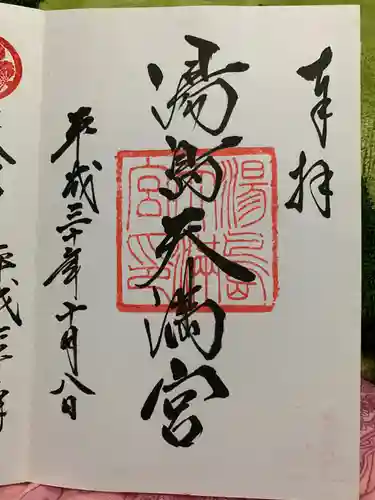 奉拝
湯島天満宮
湯島天満宮印
平成三十年十月八日